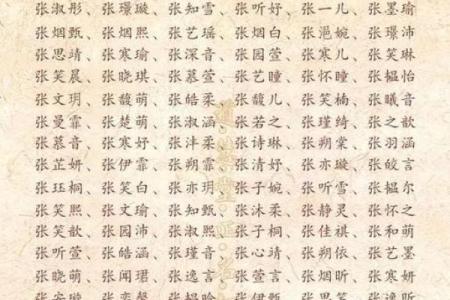 张淑彤、张璟璇、张知雪、张听妤、张一儿、张墨瑜
张烟甄、张烟熙、张艺瑶、张烟白、张滟婉、张璟沛
张思靖、张寒瑜、张深音、张园萱、张寒儿、张笑琳
张笑晨、张晓琪、张慕萱、张艺曈、张怀曈、张韫怡
张文玥、张馥萌、张皓柔、张馥儿、张笑楠、张曦音
张曼霏、张楚萌、张淑涵、张若之、张瑾绮、张之歆
张慕音、张寒妤、张沣柔、张诗琳、张朔棠、张羽涵
张芷妍、张伊霏、张朔霏、张清妤、张亦璇、张皎言
张珏桐、张笑白、张亦玥、张子婉、张听雪、张韫尔
张笑熙、张文瑜、张知甄、张沐柔、张静灵、张怀之
张笑歆、张园沛、张淑熙、张子桐、张佳祺、张和萌
张听萱、张皓涵、张瑾音、张心靖、张朔依、张艺墨
张晓萌、张闻珺、张逸言、张萱言、张烟昕、张寒妍